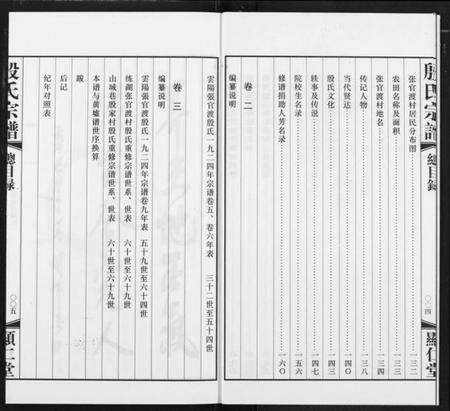 殷氏宗譜
總目録
〇〇四
顯仁堂
张官渡村居民分布图……一三二
农田名称及面积……一三三
张官渡村地名……一三四
传记人物……一三八
当代贤达……一四〇
殷氏文化……一四三
轶事及传说……一四七
院校生名录……一五六
修谱捐助人芳名录……一六〇
卷二
编纂说明
雲陽張官渡殷氏一九二四年宗谱卷五、卷六年表 三十二世至五十四世
卷三
编纂说明
雲陽張官渡殷氏一九二四年宗谱卷九年表 五十九世至六十四世
练湖张官渡村殷氏重修宗谱世系、世表 六十世至六十九世
山城巷殷家村殷氏重修宗谱世系、世表 六十世至六十九世
本谱与黄墟谱世序换算
跋
后记
纪年对照表
殷氏宗譜
總目録
〇〇五
顯仁堂